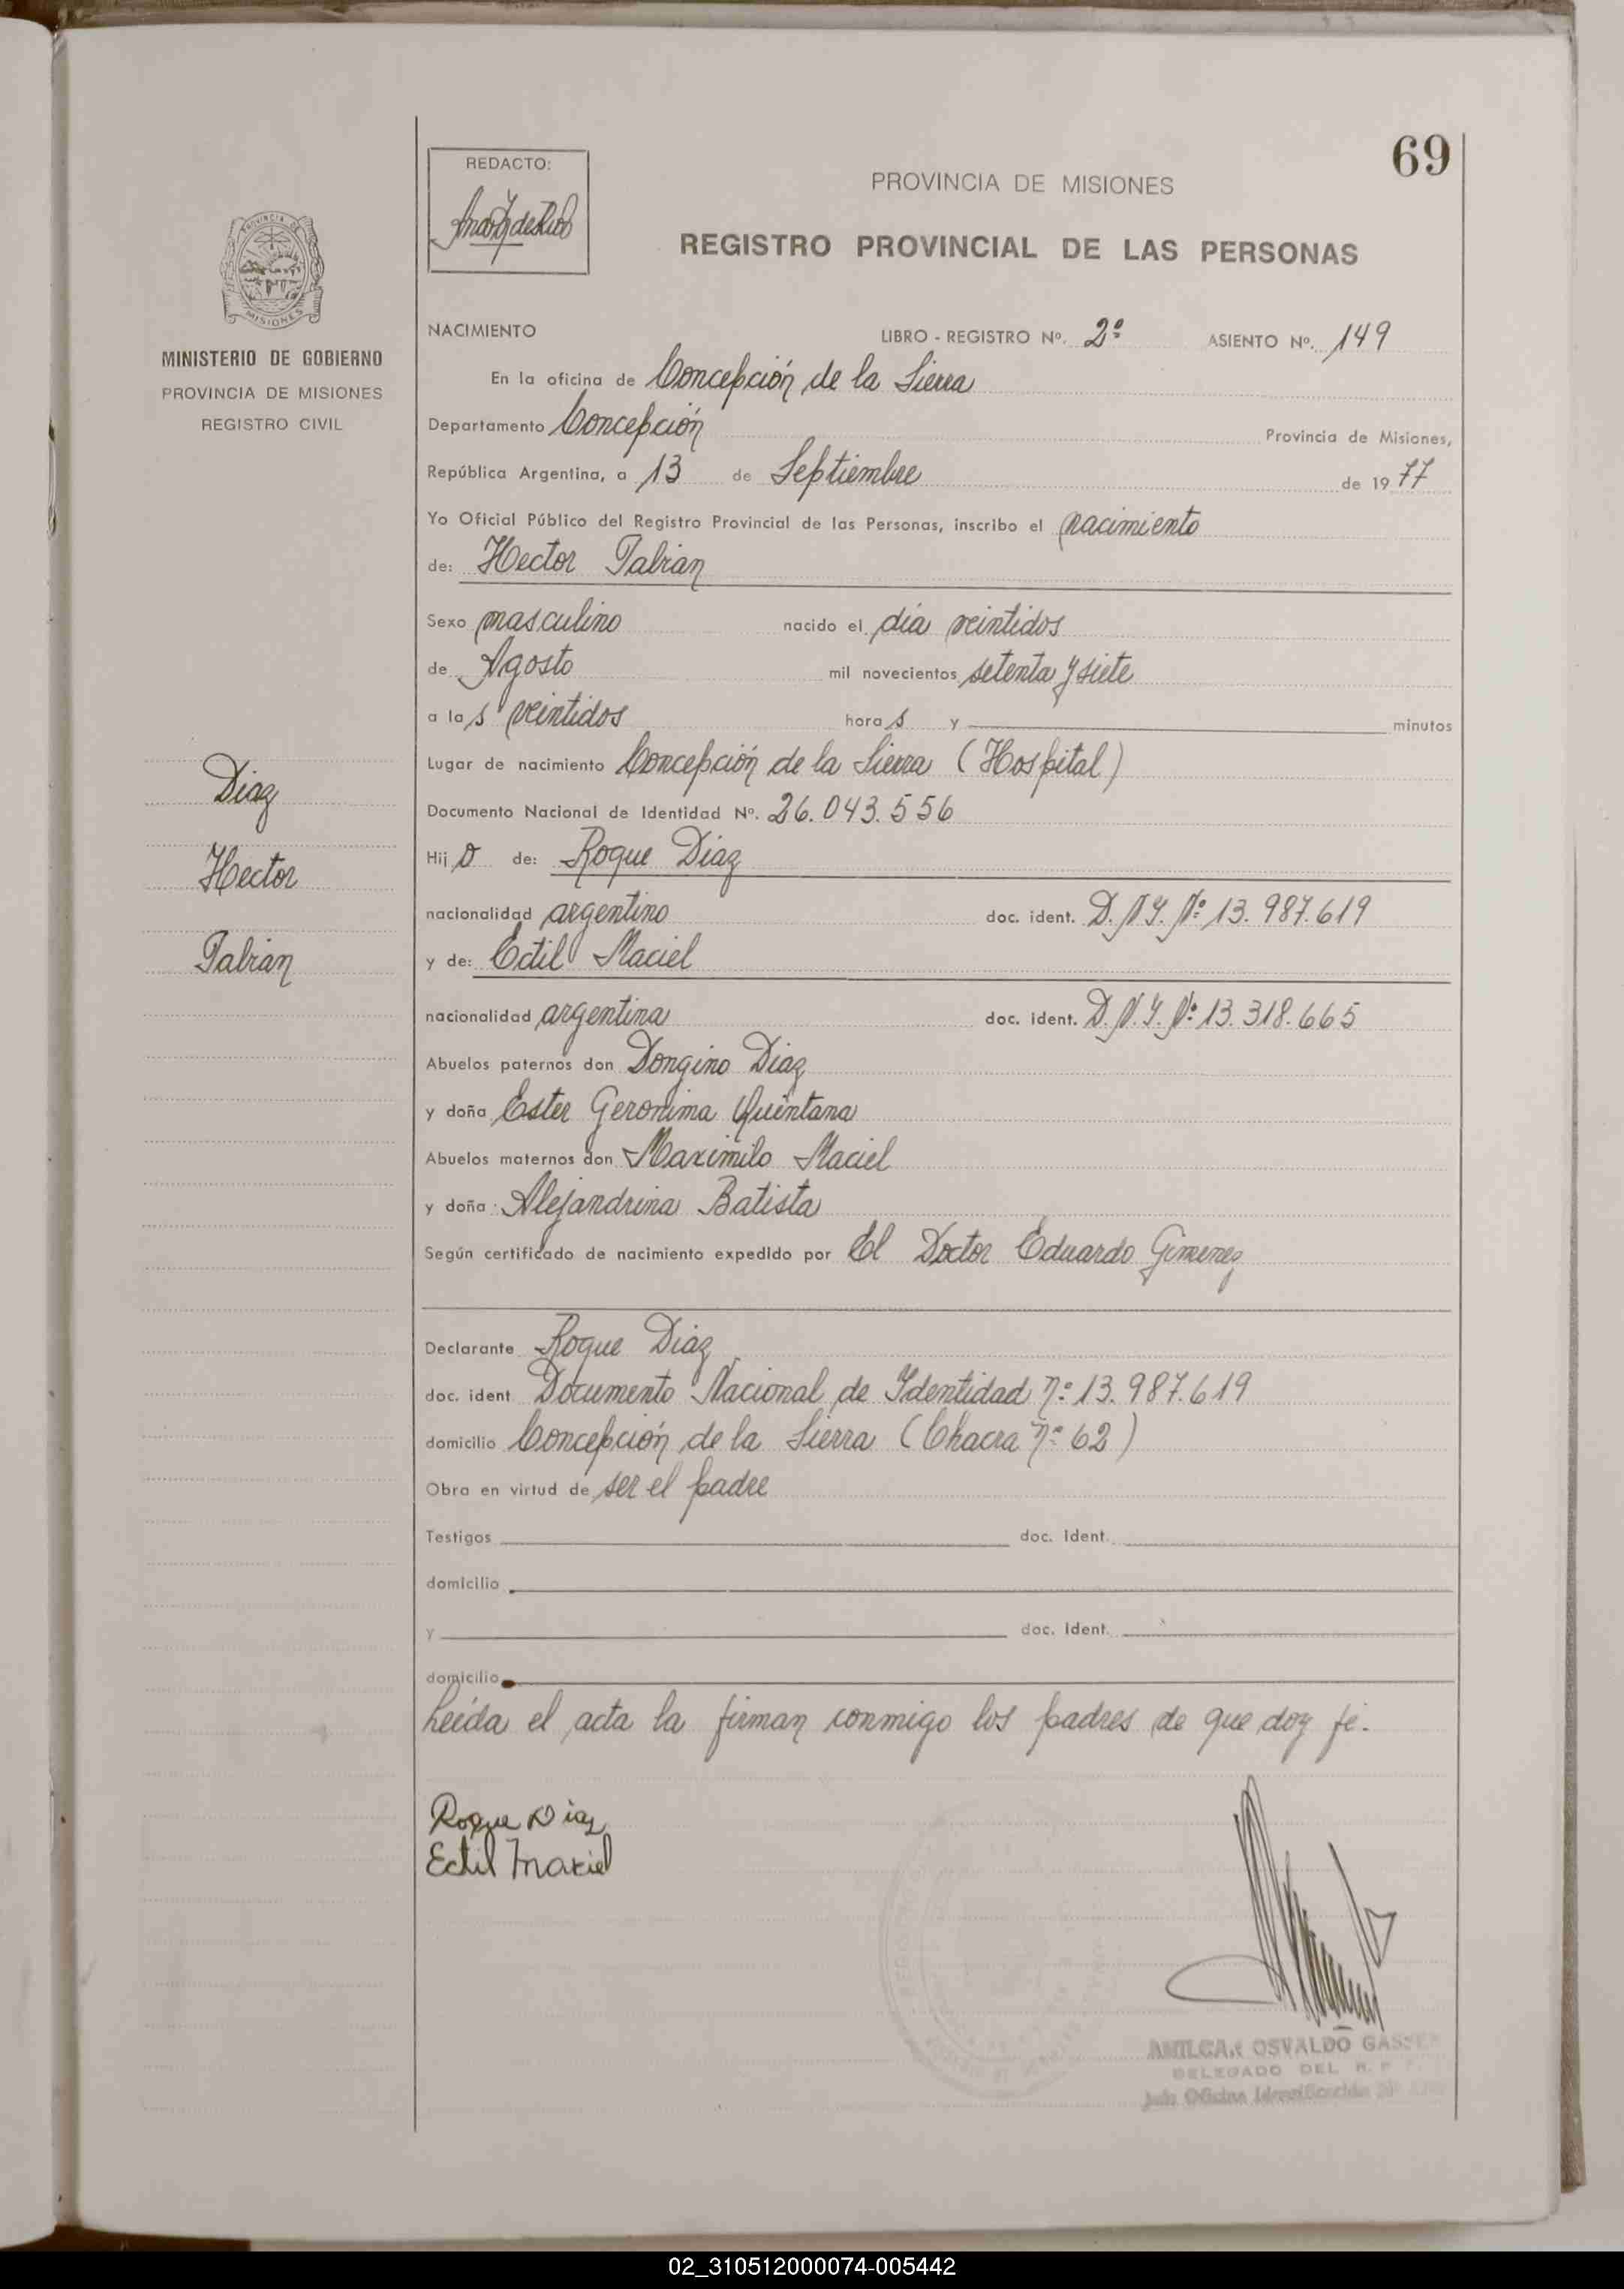 69
REDACTO:
PROVINCIA DE MISIONES
REGISTRO PROVINCIAL DE LAS PERSONAS
PROVINCIA DE
MISIONES
MINISTERIO DE GOBIERNO
PROVINCIA DE MISIONES
REGISTRO CIVIL
NACIMIENTO LIBRO - REGISTRO Nº. 2º ASIENTO Nº. 149
En la oficina de Concepción de la Sierra
Departamento Concepción Provincia de Misiones,
República Argentina, a 13 de Septiembre de 1977
Yo Oficial Público del Registro Provincial de las Personas, inscribo el nacimiento
de: Hector Fabian
Sexo masculino nacido el día veintidos
de Agosto mil novecientos setenta y siete
a las veintidos horas y minutos
Lugar de nacimiento Concepción de la Sierra (Hospital)
Documento Nacional de Identidad Nº. 26.043.556
Hijo de: Roque Diaz
nacionalidad argentino doc. ident. D.N.I. Nº 13.987.619
y de: Ectil Maciel
nacionalidad argentina doc. ident. D.N.I. Nº 13.318.665
Abuelos paternos don Dongino Diaz
y doña Ester Geronima Quintana
Abuelos maternos don Maximilo Maciel
y doña: Alejandrina Batista
Según certificado de nacimiento expedido por El Doctor Eduardo Gimenez
Declarante Roque Diaz
doc. ident Documento Nacional de Identidad nº 13.987.619
domicilio Concepción de la Sierra (Chacra nº 62)
Obra en virtud de ser el padre
Testigos doc. Ident.
domicilio
y doc. Ident.
domicilio
Leída el acta la firman conmigo los padres de que doy fé.
Diaz
Hector
Fabian
Roque Diaz
Ectil Maciel
AMILCAR OSVALDO
DELEGADO DEL R. P.
Jefe Oficina Identificación
02_310512000074-005442